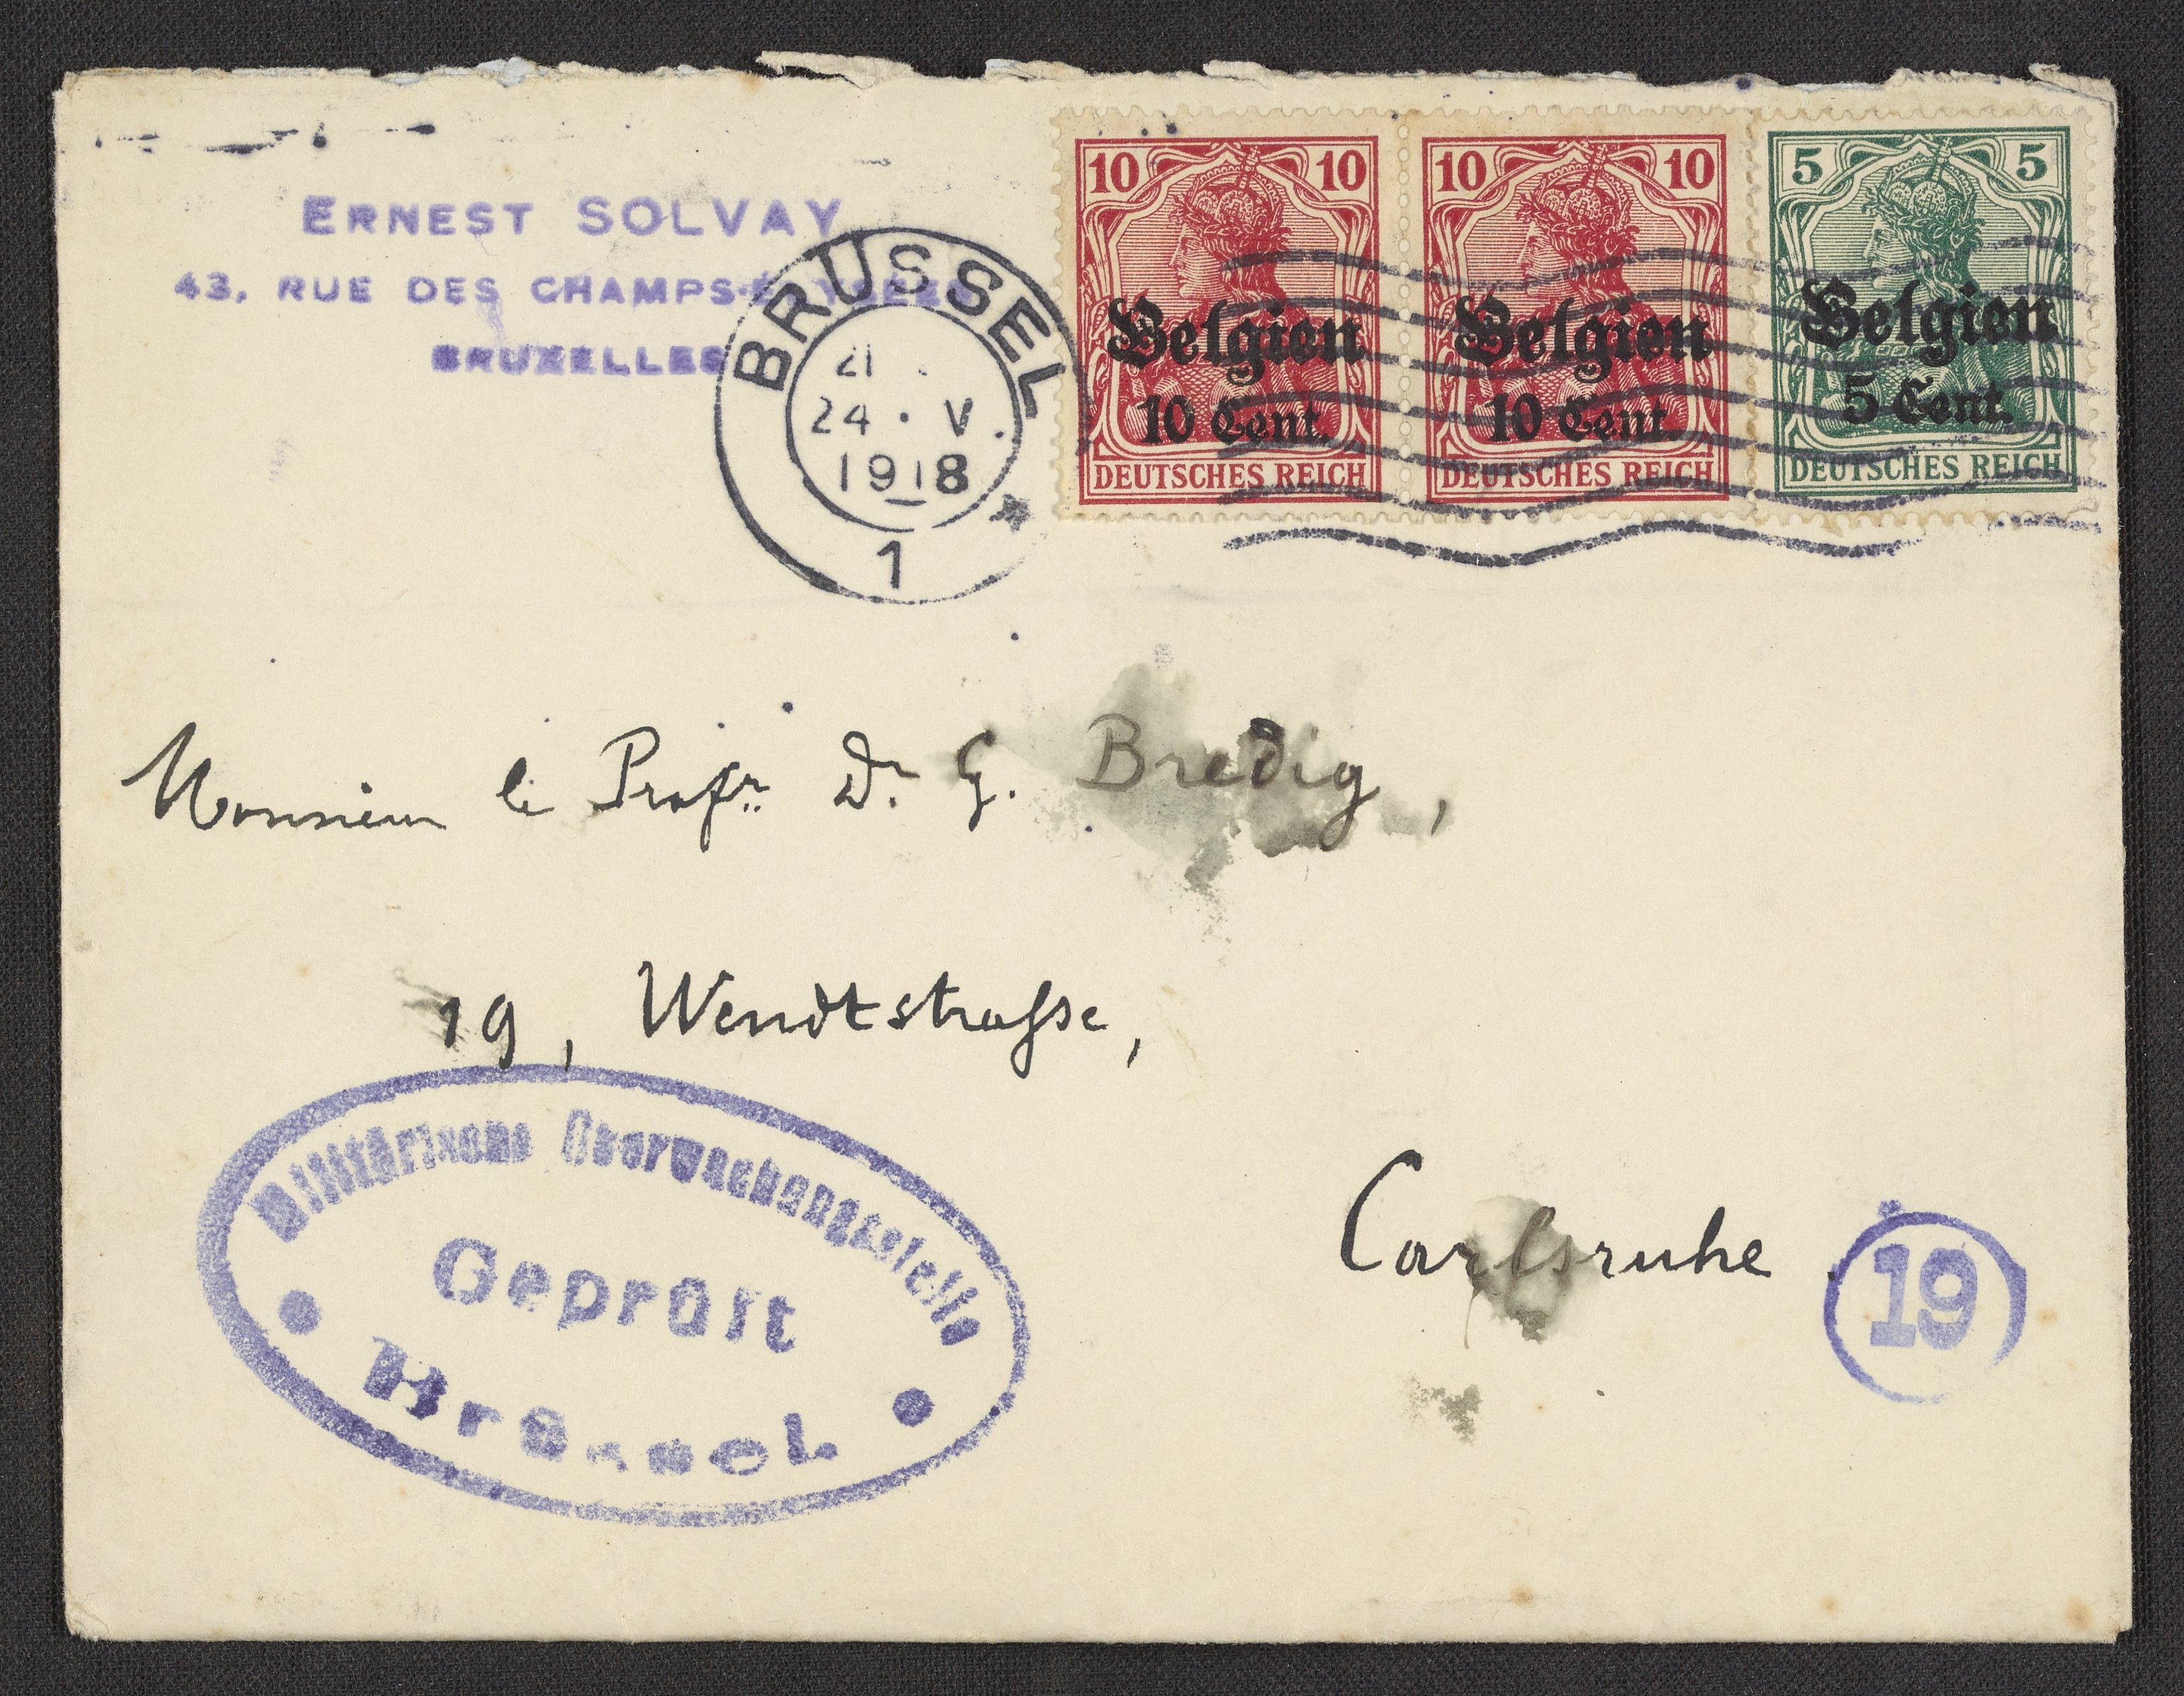 ERNEST SOLVAY
43, RUE DES CHAMPS-ÉLYSÉES
BRUXELLES
BRÜSSEL
21
24 · V.
1918
1
10 10
Belgien
10 Cent.
DEUTSCHES REICH
10 10
Belgien
10 Cent.
DEUTSCHES REICH
5 5
Belgien
5 Cent.
DEUTSCHES REICH
Monsieur le Profr Dr. G. Bredig,
19, Wendtstrasse,
Carlsruhe.
19
Militärische Überwachungsstelle
Geprüft
Brüssel